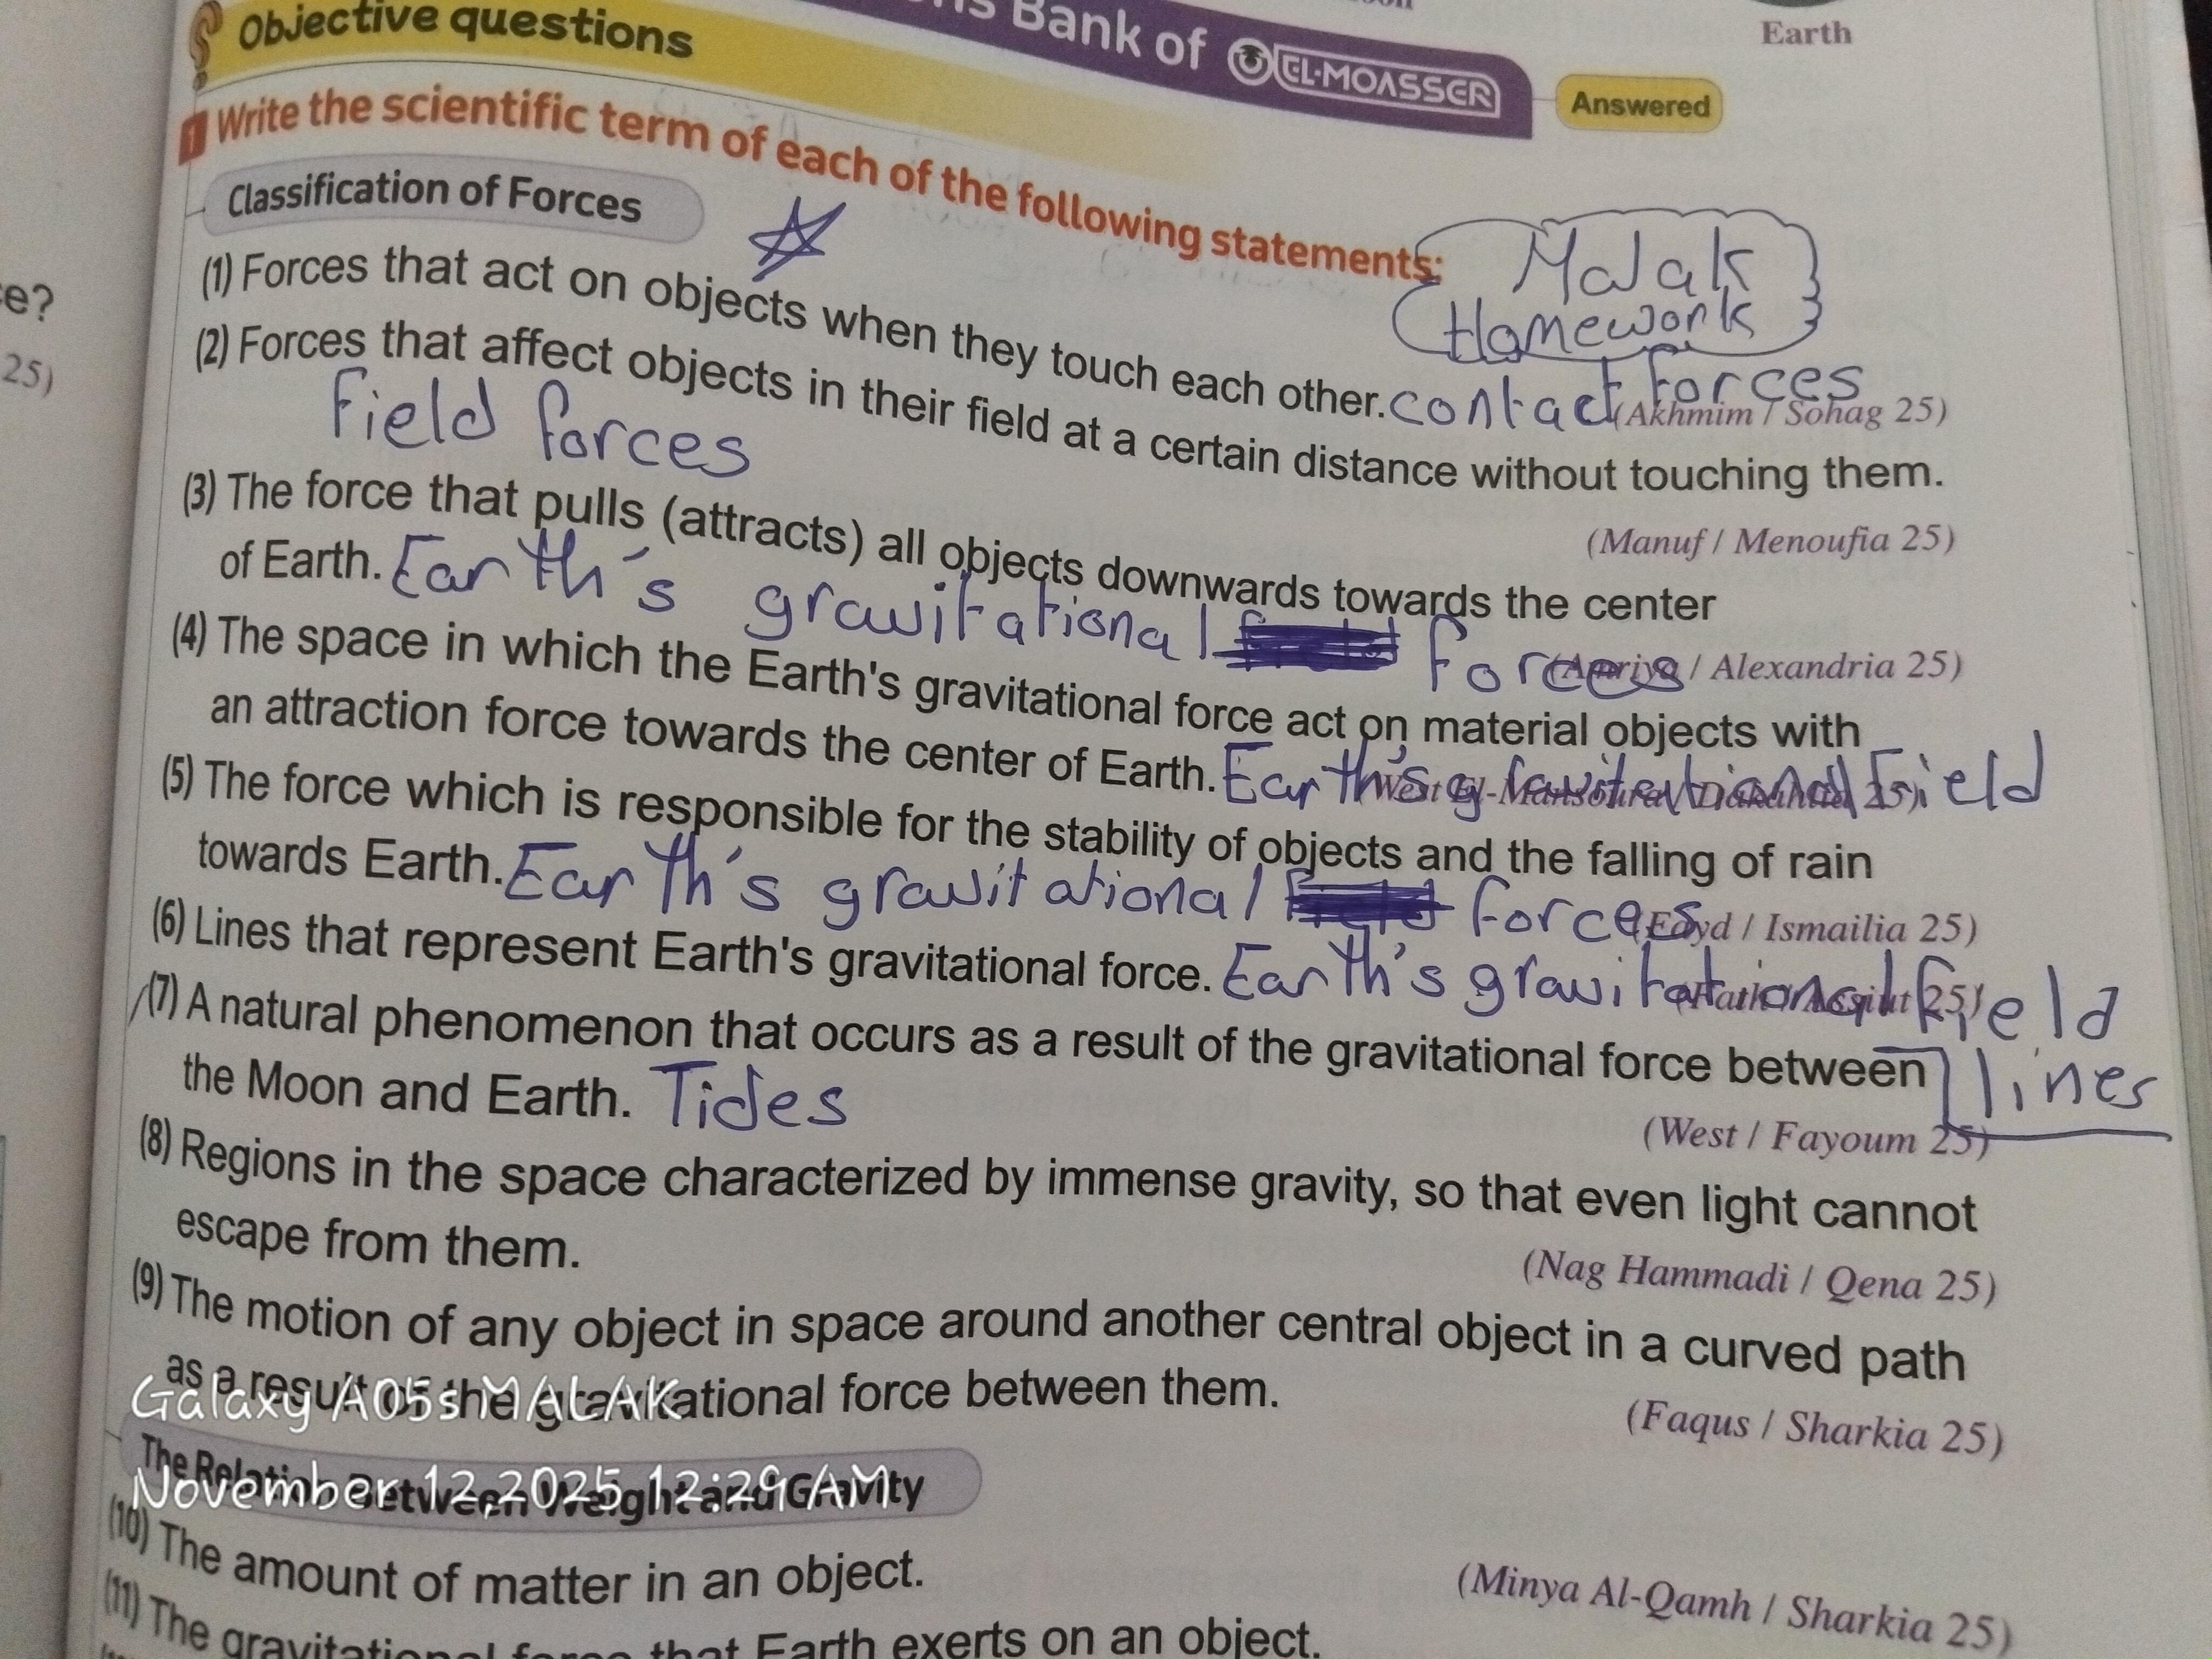 Bank of EL-MOASSER
Earth
Objective questions
Answered
1 Write the scientific term of each of the following statements:
Classification of Forces
Malak
Homework
(1) Forces that act on objects when they touch each other. contact forces
(Akhmim / Sohag 25)
(2) Forces that affect objects in their field at a certain distance without touching them.
Field forces
(Manuf / Menoufia 25)
(3) The force that pulls (attracts) all objects downwards towards the center
of Earth. Earth's gravitational forces
/ Alexandria 25)
(4) The space in which the Earth's gravitational force act on material objects with
an attraction force towards the center of Earth. Earth's gravitational Field
(West El-Mansoura / Dakahlia 25)
(5) The force which is responsible for the stability of objects and the falling of rain
towards Earth. Earth's gravitational forces
(Fayd / Ismailia 25)
(6) Lines that represent Earth's gravitational force. Earth's gravitational field
lines
Assiut 25)
(7) A natural phenomenon that occurs as a result of the gravitational force between
the Moon and Earth. Tides
(West / Fayoum 25)
(8) Regions in the space characterized by immense gravity, so that even light cannot
escape from them.
(Nag Hammadi / Qena 25)
(9) The motion of any object in space around another central object in a curved path
as a result of the gravitational force between them.
(Faqus / Sharkia 25)
Galaxy A05s MALAK
The Relation Between Weight and Gravity
November 12,2025 12:29 AM
(10) The amount of matter in an object.
(Minya Al-Qamh / Sharkia 25)
(11) The gravitational force that Earth exerts on an object.
e?
25)